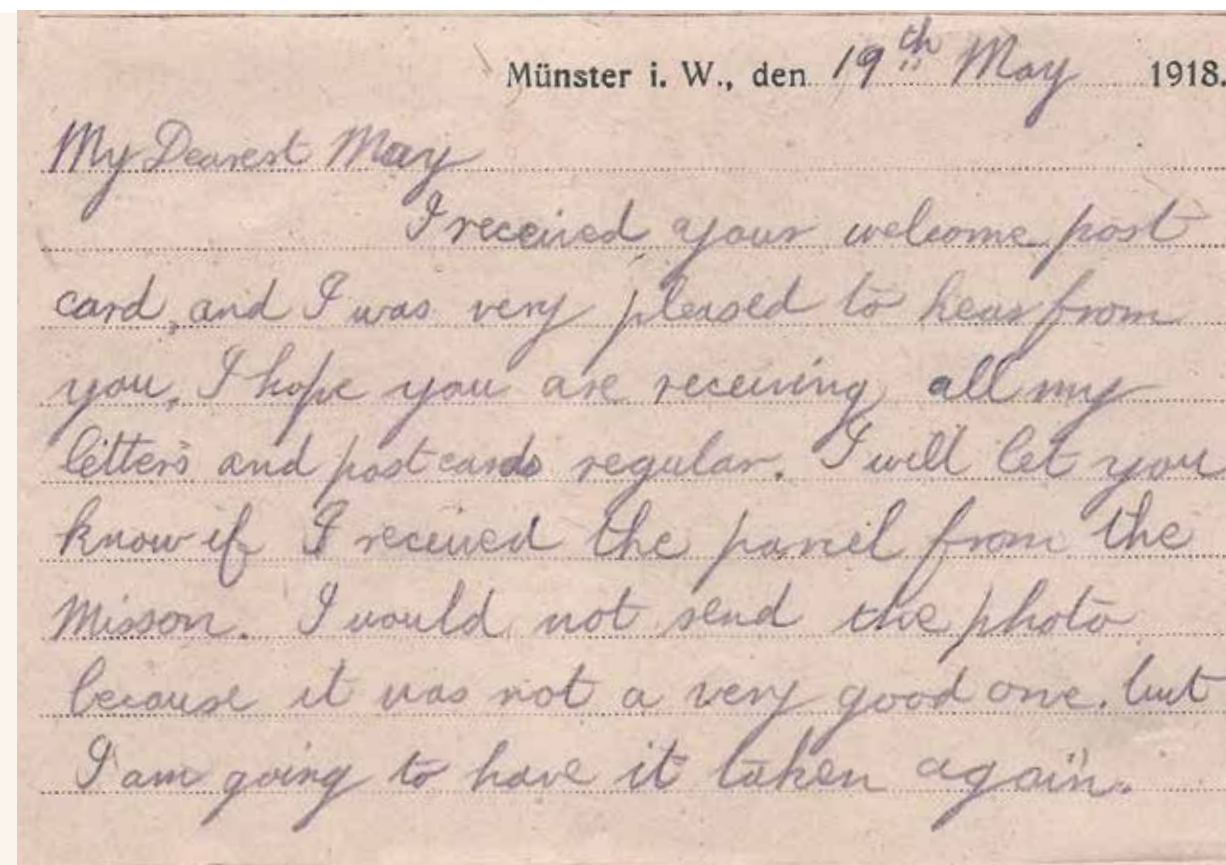 Münster i. W., den 19th May 1918.
My Dearest May
I received your welcome post
card, and I was very pleased to hear from
you. I hope you are receiving all my
letters and post cards regular. I will let you
know if I received the parcel from the
Misson. I would not send the photo
because it was not a very good one. but
I am going to have it taken again.